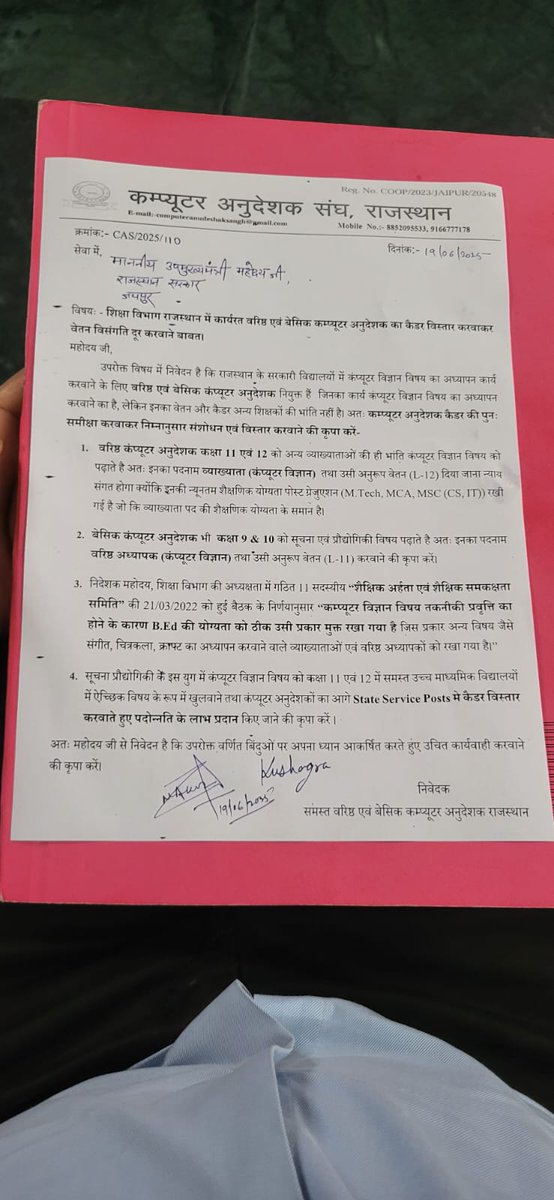 Reg. No. COOP/2023/JAIPUR/20548
कम्प्यूटर अनुदेशक संघ, राजस्थान
E-mail:-computeranudeshaksangh@gmail.com Mobile No.:- 8852095533, 9166777178
क्रमांक:- CAS/2025/110
दिनांक:- 19/06/2025
सेवा में,
माननीय उपमुख्यमंत्री महोदय जी,
राजस्थान सरकार
जयपुर
विषयः- शिक्षा विभाग राजस्थान में कार्यरत वरिष्ठ एवं बेसिक कम्प्यूटर अनुदेशक का कैडर विस्तार करवाकर
वेतन विसंगति दूर करवाने बाबत।
महोदय जी,
उपरोक्त विषय में निवेदन है कि राजस्थान के सरकारी विद्यालयों में कंप्यूटर विज्ञान विषय का अध्यापन कार्य
करवाने के लिए वरिष्ठ एवं बेसिक कंप्यूटर अनुदेशक नियुक्त हैं जिनका कार्य कंप्यूटर विज्ञान विषय का अध्यापन
करवाने का है, लेकिन इनका वेतन और कैडर अन्य शिक्षकों की भांति नहीं है। अतः कम्प्यूटर अनुदेशक कैडर की पुनः
समीक्षा करवाकर निम्नानुसार संशोधन एवं विस्तार करवाने की कृपा करें-
1. वरिष्ठ कंप्यूटर अनुदेशक कक्षा 11 एवं 12 को अन्य व्याख्याताओं की ही भांति कंप्यूटर विज्ञान विषय को
पढ़ाते है अतः इनका पदनाम व्याख्याता (कंप्यूटर विज्ञान) तथा उसी अनुरूप वेतन (L-12) दिया जाना न्याय
संगत होगा क्योंकि इनकी न्यूनतम शैक्षणिक योग्यता पोस्ट ग्रेजुएशन (M.Tech, MCA, MSC (CS, IT)) रखी
गई है जो कि व्याख्याता पद की शैक्षणिक योग्यता के समान है।
2. बेसिक कंप्यूटर अनुदेशक भी कक्षा 9 & 10 को सूचना एवं प्रौद्योगिकी विषय पढ़ाते है अतः इनका पदनाम
वरिष्ठ अध्यापक (कंप्यूटर विज्ञान) तथा उसी अनुरूप वेतन (L-11) करवाने की कृपा करें।
3. निदेशक महोदय, शिक्षा विभाग की अध्यक्षता में गठित 11 सदस्यीय "शैक्षिक अर्हता एवं शैक्षिक समकक्षता
समिति" की 21/03/2022 को हुई बैठक के निर्णयानुसार "कम्प्यूटर विज्ञान विषय तकनीकी प्रवृत्ति का
होने के कारण B.Ed की योग्यता को ठीक उसी प्रकार मुक्त रखा गया है जिस प्रकार अन्य विषय जैसे
संगीत, चित्रकला, क्राफ्ट का अध्यापन करवाने वाले व्याख्याताओं एवं वरिष्ठ अध्यापकों को रखा गया है।"
4. सूचना प्रौद्योगिकी के इस युग में कंप्यूटर विज्ञान विषय को कक्षा 11 एवं 12 में समस्त उच्च माध्यमिक विद्यालयों
में ऐच्छिक विषय के रूप में खुलवाने तथा कंप्यूटर अनुदेशकों का आगे State Service Posts मे कैडर विस्तार
करवाते हुए पदोन्नति के लाभ प्रदान किए जाने की कृपा करें ।
अतः महोदय जी से निवेदन है कि उपरोक्त वर्णित बिंदुओं पर अपना ध्यान आकर्षित करते हुए उचित कार्यवाही करवाने
की कृपा करें।
Kushagra
19/06/2025
निवेदक
समस्त वरिष्ठ एवं बेसिक कम्प्यूटर अनुदेशक राजस्थान